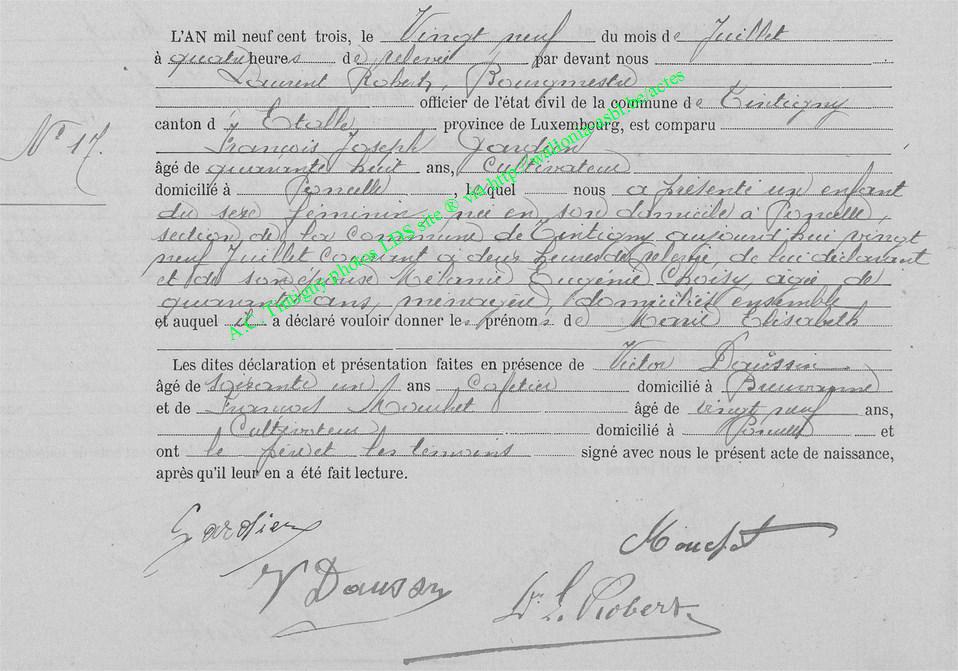 L'AN mil neuf cent trois, le Vingt neuf du mois de Juillet
à quatre heures de relevée par devant nous
Laurent Robert, Bourgmestre
officier de l'état civil de la commune de Tintigny
canton d' Etalle province de Luxembourg, est comparu
N° 17.
François Joseph Gardien
âgé de quarante huit ans, Cultivateur
domicilié à Poncelle, lequel nous a présenté un enfant
du sexe féminin, née en son domicile à Poncelle,
section de la commune de Tintigny aujourd'hui vingt
neuf Juillet courant à deux heures de relevée, de lui déclarant
et de son épouse Mélanie Eugénie Choisy âgée de
quarante ans, ménagère, domiciliés ensemble
et auquel il a déclaré vouloir donner les prénoms de Marie Elisabeth
Les dites déclaration et présentation faites en présence de Victor Daussin
âgé de soixante un ans Cafetier domicilié à Breuvanne
et de François Mouchet âgé de vingt neuf ans,
Cultivateur domicilié à Poncelle et
ont le père et les témoins signé avec nous le présent acte de naissance,
après qu'il leur en a été fait lecture.
Gardien
Mouchet
V Daussin
Dr L. Robert
A.C. Tintigny photos LDS site ® via http://wallonia-asbl.be/actes